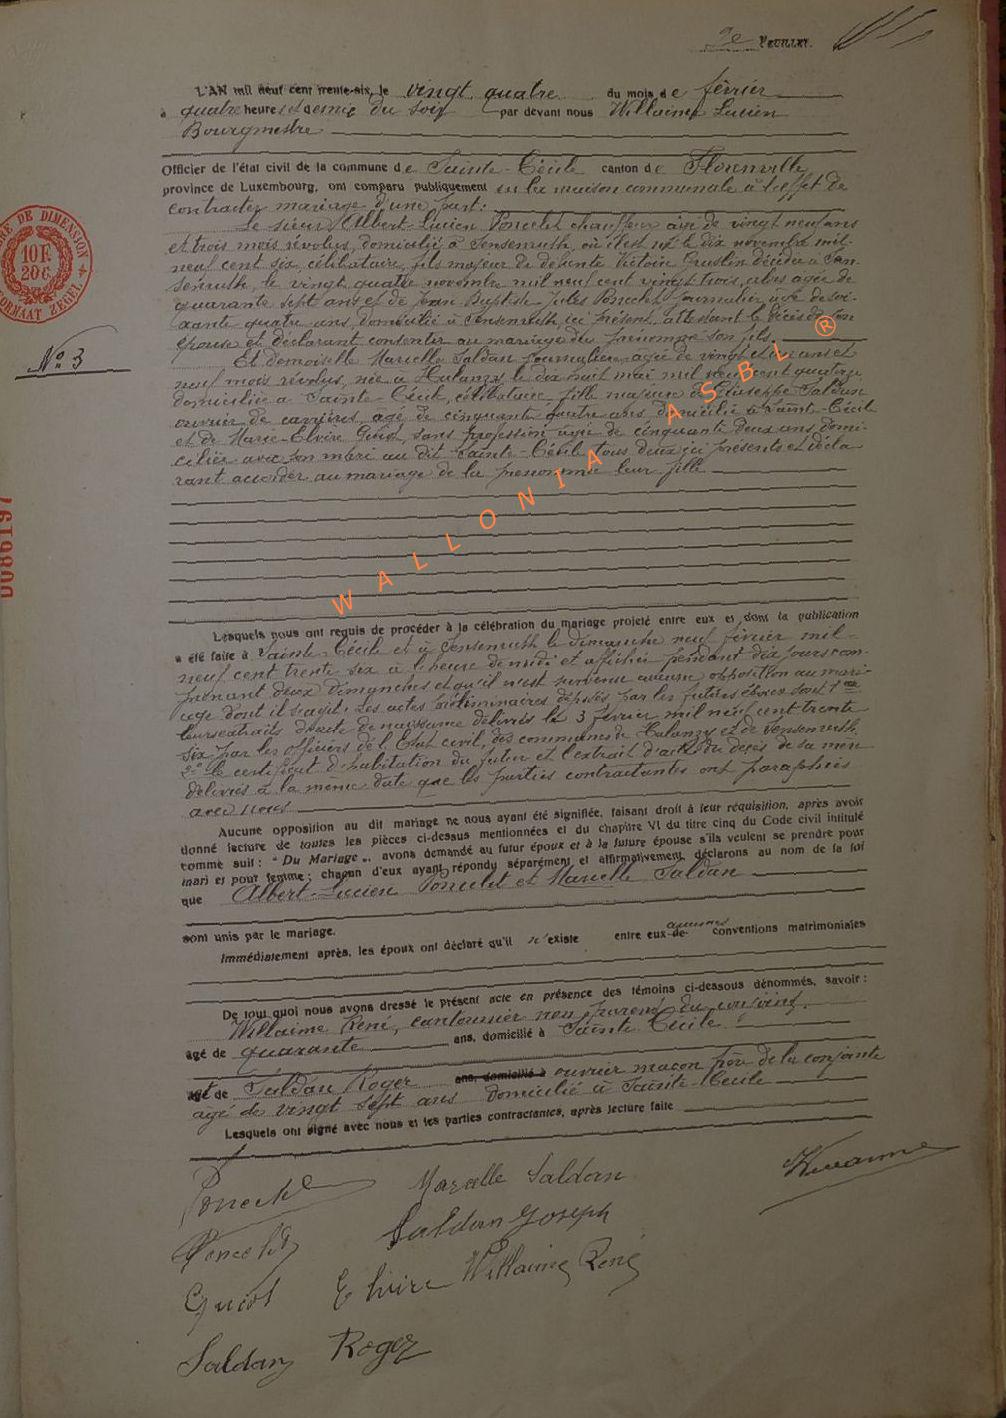 2e FEUILLET.
L'AN mil neuf cent trente-six, le vingt quatre du mois de février
à quatre heures et demie du soir par devant nous Willaime Lucien
Bourgmestre
Officier de l'état civil de la commune de Sainte-Cécile canton de Florenville
province de Luxembourg, ont comparu publiquement en la maison communale à l'effet de
contracter mariage d'une part:
Le sieur Albert-Lucien Poncelet chauffeur âgé de vingt neuf ans
et trois mois révolus, domicilié à Sensenruth, où il est né le dix novembre mil-
neuf cent six, célibataire, fils majeur de défunte Victoire Gruslin décédée à Sen
senruth, le vingt quatre novembre mil neuf cent vingt trois, alors âgée de
quarante sept ans et de Jean Baptiste Jules Poncelet journalier, âgé de soi-
xante quatre ans, domicilié à Sensenruth, ici présent, attestant le décès de son
épouse et déclarant consentir au mariage du prénommé son fils.
Et demoiselle Marcelle Saldan journalière, agée de vingt et un ans et
neuf mois révolus, née à Halanzy le dix huit mai mil neuf cent quatorze
domiciliée à Sainte-Cécile, célibataire, fille majeure de Giuseppe Saldan
ouvrier de carrières, âgé de cinquante quatre ans domicilié à Sainte-Cécile
et de Marie-Elvire Guiot, sans profession agée de cinquante deux ans, domi-
ciliée avec son mari au dit Sainte-Cécile tous deux ici présents et décla
rant accéder au mariage de la prénommée leur fille
Nº 3
10 F.
20 C.
FORMAAT ZEGEL
0086197
WALLONIA ASBL ®
Lesquels nous ont requis de procéder à la célébration du mariage projeté entre eux et dont la publication
a été faite à Sainte-Cécile et à Sensenruth le dimanche neuf février mil-
neuf cent trente six à l'heure de midi et affichée pendant dix jours com-
prenant deux dimanches et qu'il n'est survenu aucune opposition au mari-
age dont il s'agit. Les actes préliminaires déposés par les futurs époux sont 1°
leurs extraits d'acte de naissance délivrés le 3 février mil neuf cent trente
six par les officiers de l'Etat civil, des communes de Halanzy et de Sensenruth
2° le certificat d'habitation du futur et l'extrait d'acte du décès de sa mère
délivrés à la même date que les parties contractantes ont paraphées
avec nous
Aucune opposition au dit mariage ne nous ayant été signifiée, faisant droit à leur réquisition, après avoir
donné lecture de toutes les pièces ci-dessus mentionnées et du chapitre VI du titre cinq du Code civil intitulé
comme suit : " Du Mariage „, avons demandé au futur époux et à la future épouse s'ils veulent se prendre pour
mari et pour femme ; chacun d'eux ayant répondu séparément et affirmativement, déclarons au nom de la loi
que Albert-Lucien Poncelet et Marcelle Saldan
sont unis par le mariage.
Immédiatement après, les époux ont déclaré qu'il n'existe entre eux de aucunes conventions matrimoniales
De tout quoi nous avons dressé le présent acte en présence des témoins ci-dessous dénommés, savoir :
Willaime René, cantonnier non parent du conjoint,
âgé de quarante ans, domicilié à Sainte Cécile
et Saldan Roger ans, domicilié à ouvrier maçon frère de la conjointe
âgé de vingt sept ans domicilié à Sainte-Cécile
Lesquels ont signé avec nous et les parties contractantes, après lecture faite
Poncelet Marcelle Saldan
Poncelet Saldan Joseph
Guiot Elvire Willaime René
Saldan Roger